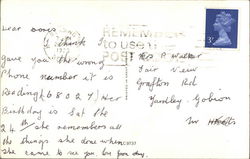 Dear
I think
gave you the wrong
Phone number it is
Reading (68024) Her
Birthday is Sat the
24th she remembers all
the things she done when
she came to see you for
day.
REMEMBER
to use
POST
3P
Mrs P Walker
Fair View
Grafton Rd
Yardley Gobion
Nr